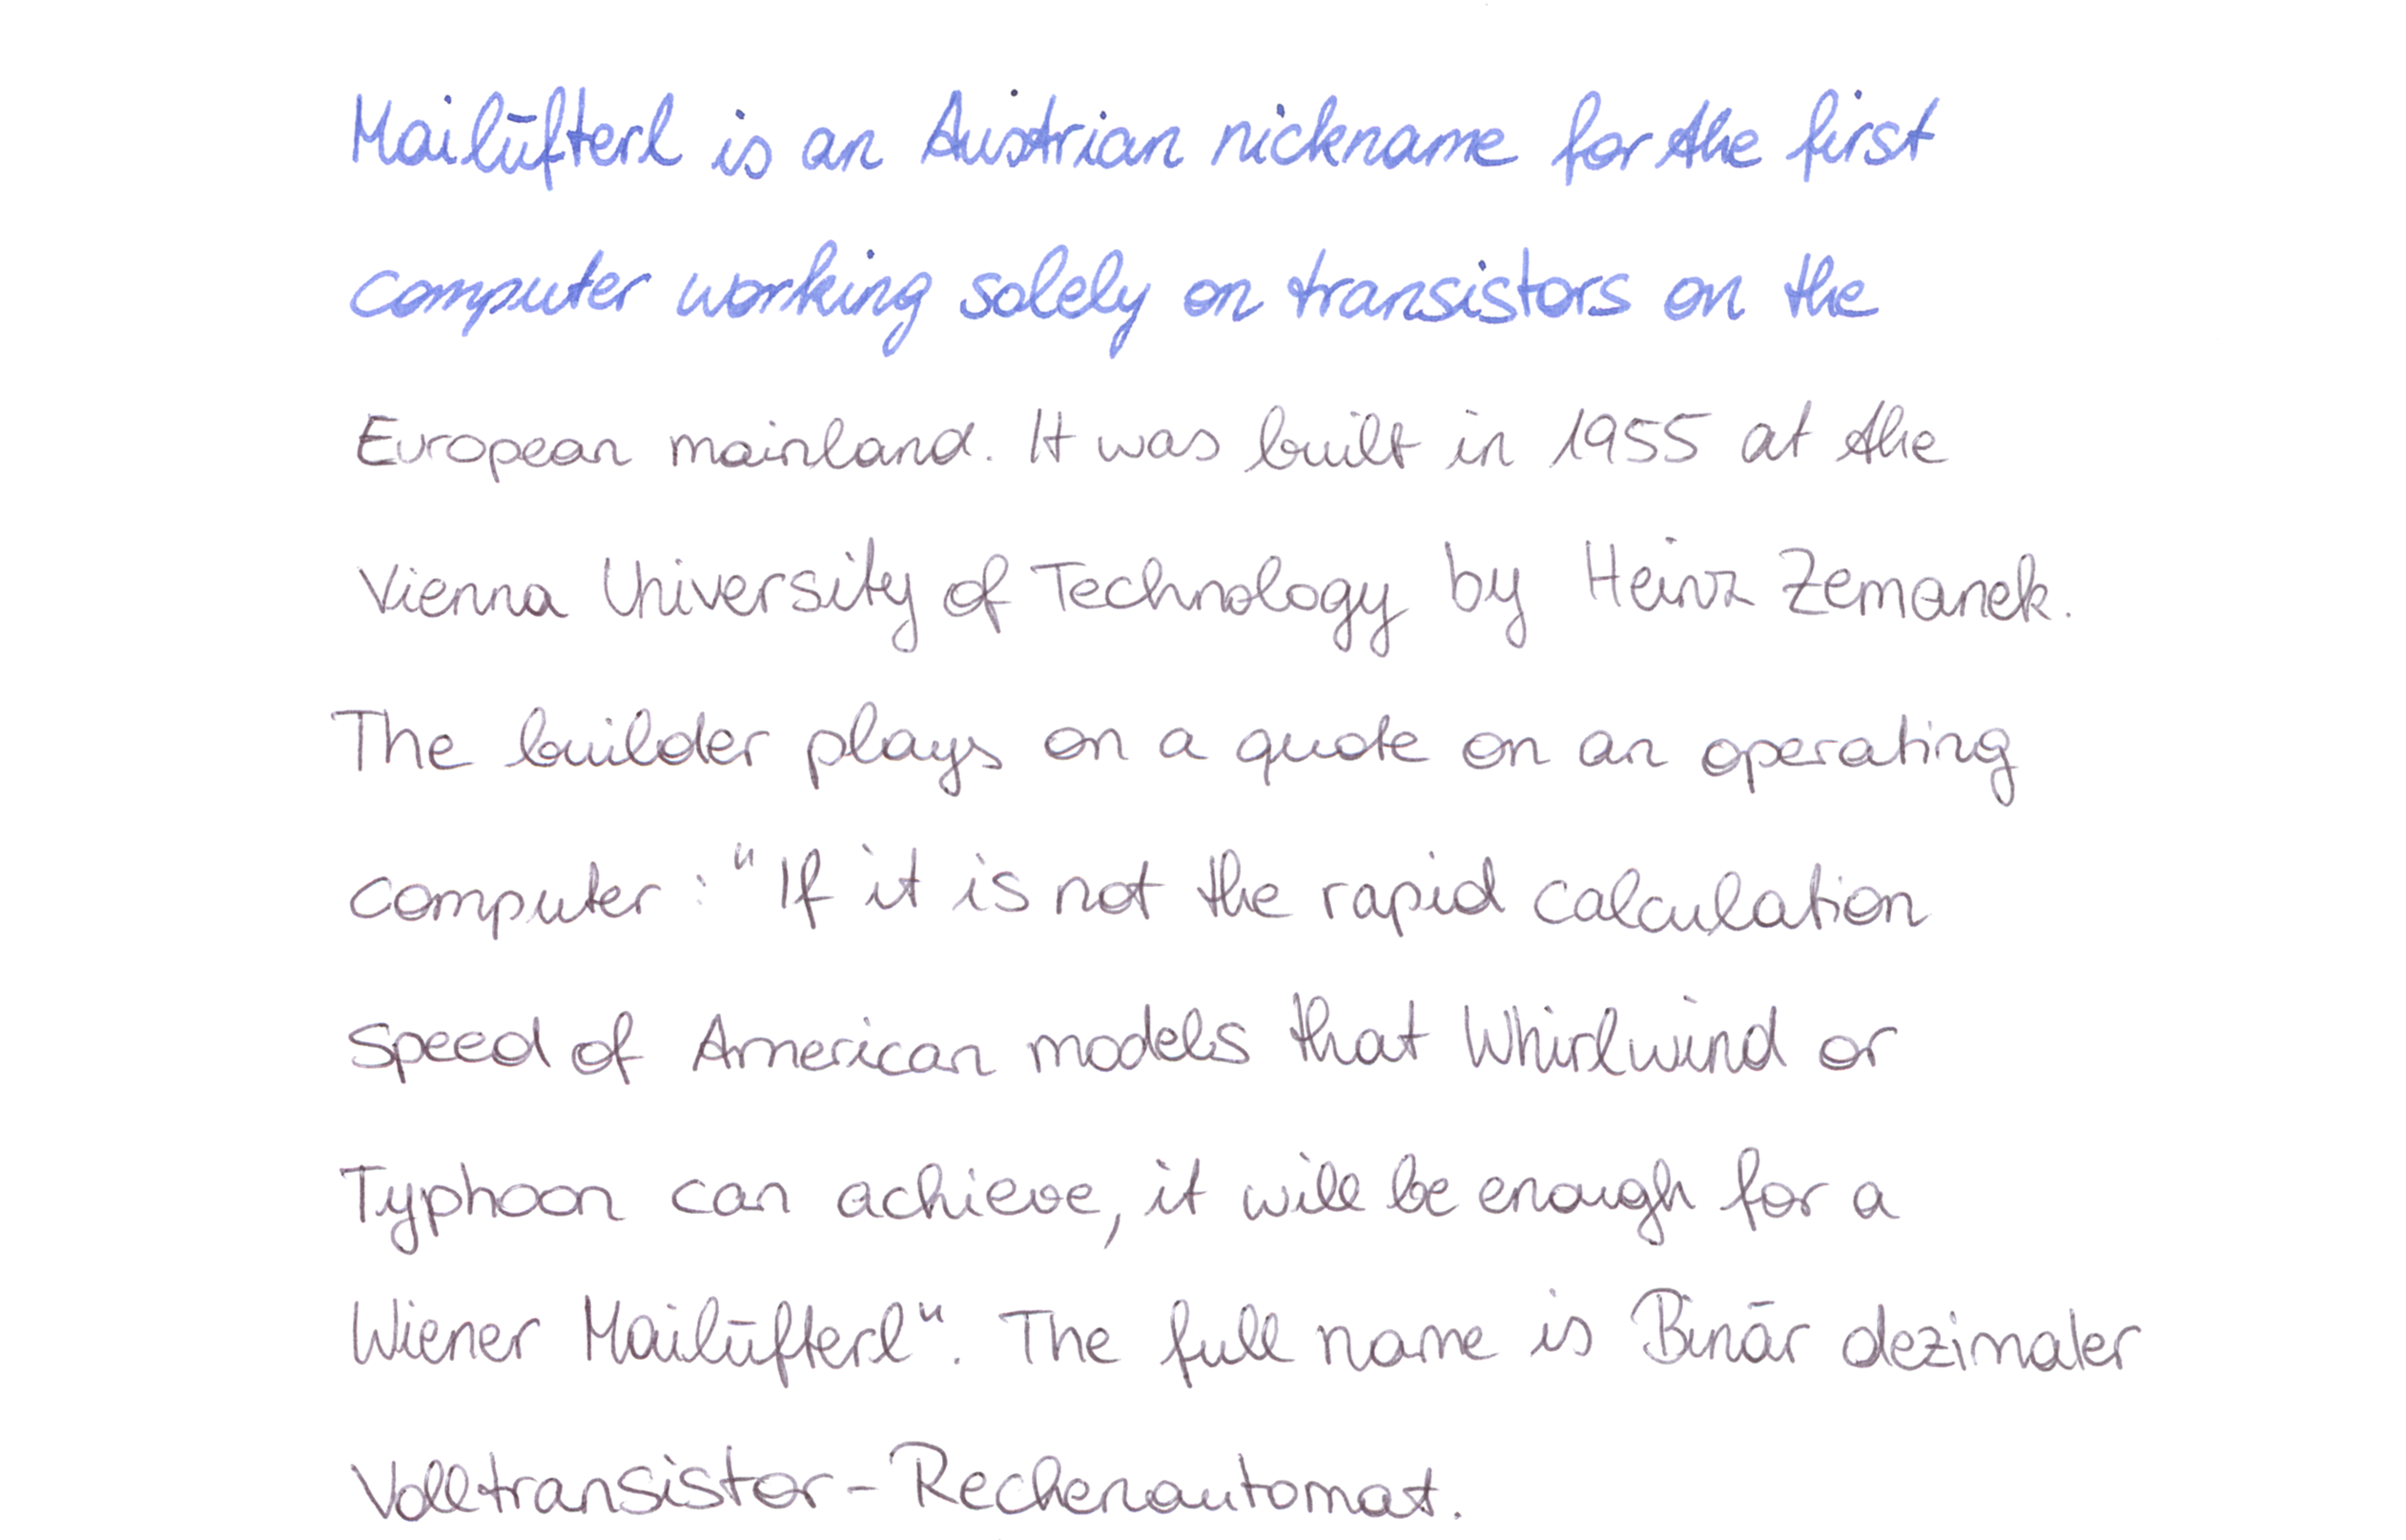 Mailüfterl is an Austrian nickname for the first
computer working solely on transistors on the
European mainland. It was built in 1955 at the
Vienna University of Technology by Heinz Zemanek.
The builder plays on a quote on an operating
computer: "If it is not the rapid calculation
speed of American models that Whirlwind or
Typhoon can achieve, it will be enough for a
Wiener Mailüfterl". The full name is Binär dezimaler
Volltransistor-Rechenautomat.